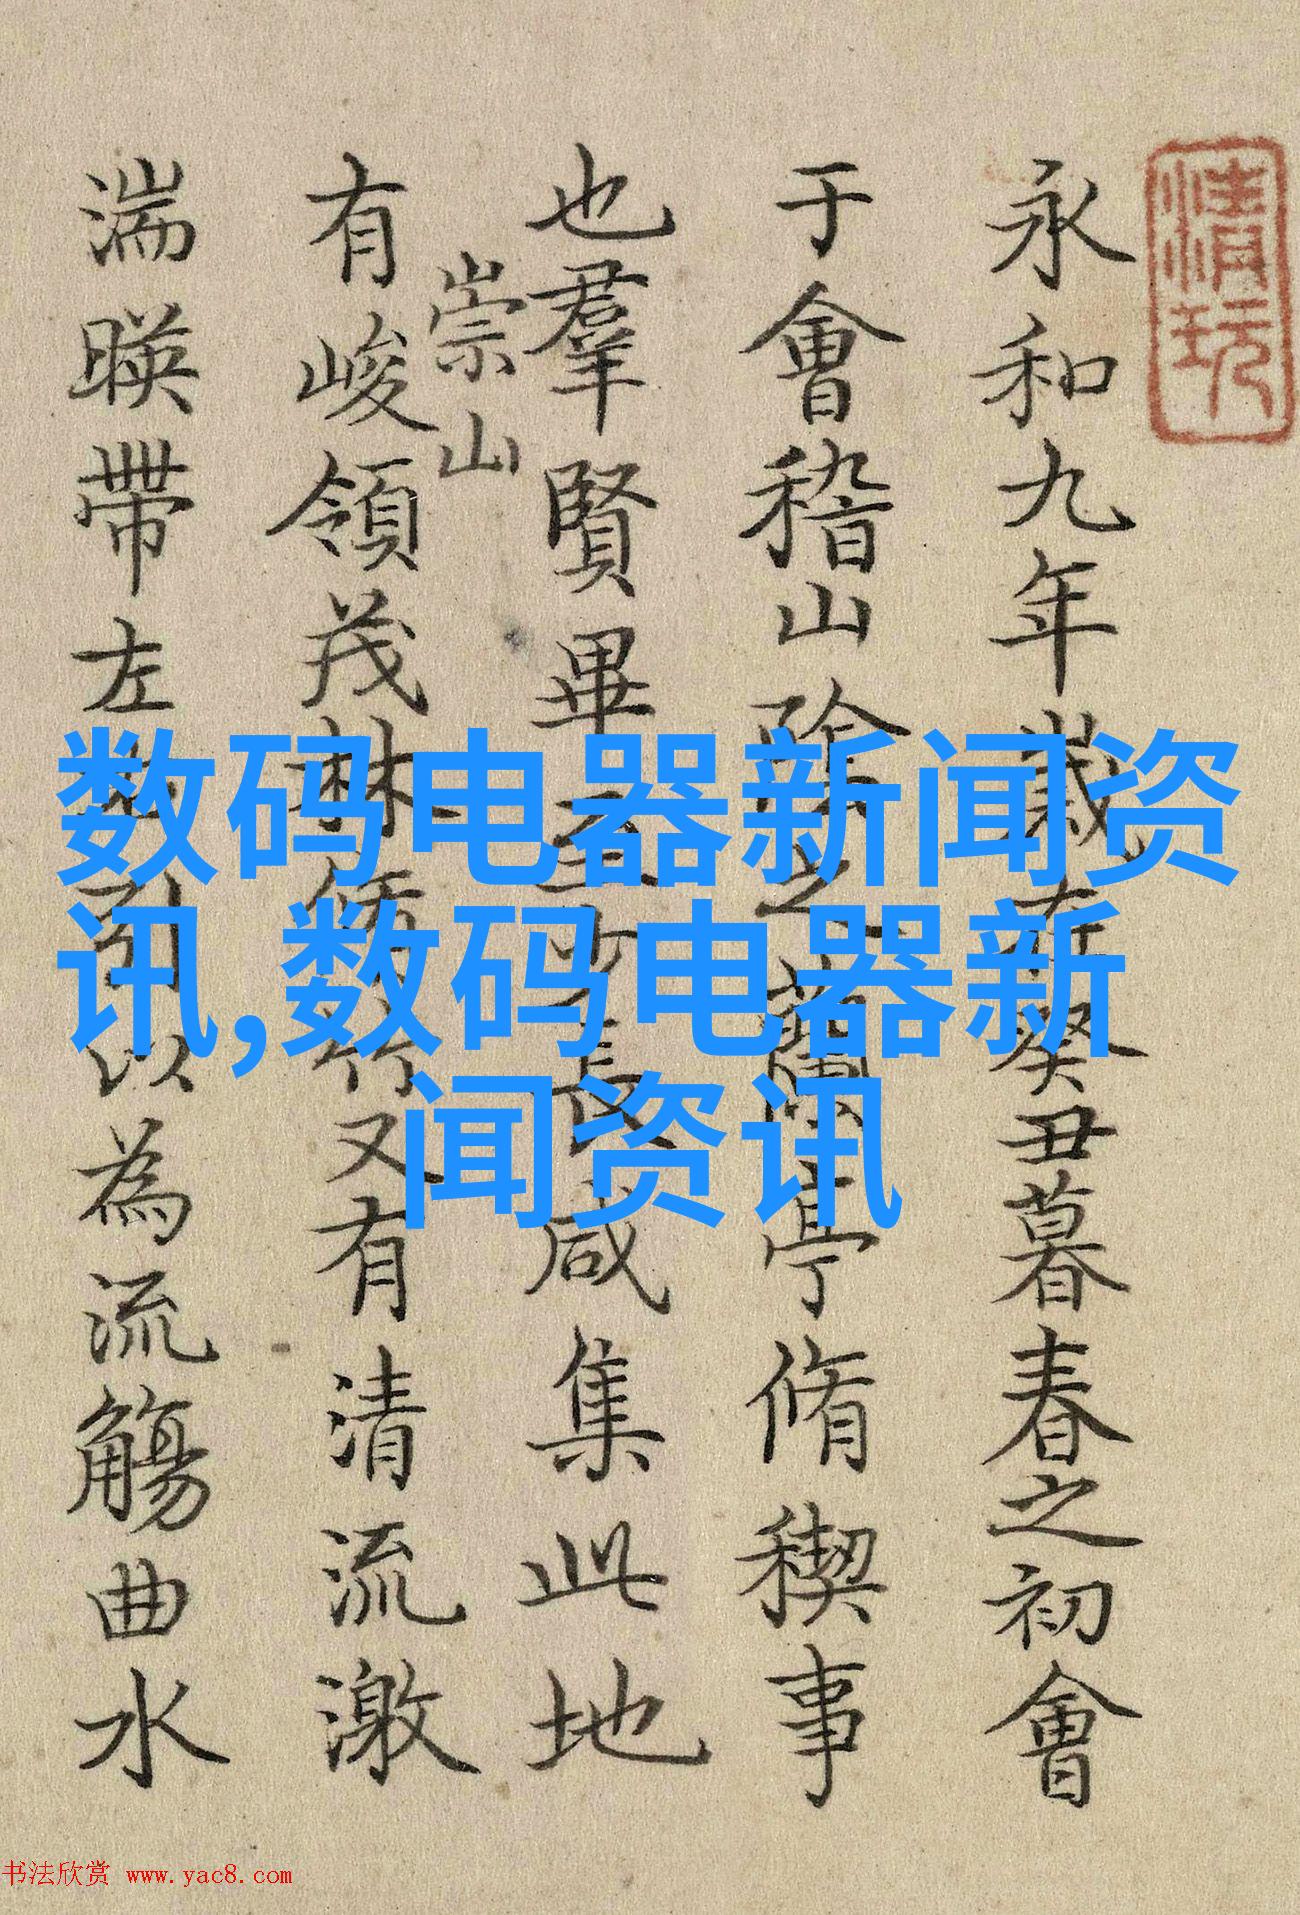 清玩
永和九年歲在癸丑暮春之初會
于會稽山陰之蘭亭脩稧事
也羣賢畢至少長咸集此地
崇山
有峻領茂林脩竹又有清流激
湍暎帶左右引以為流觴曲水
数码电器新闻资
讯,数码电器新
闻资讯
书法欣赏 www.yac8.com